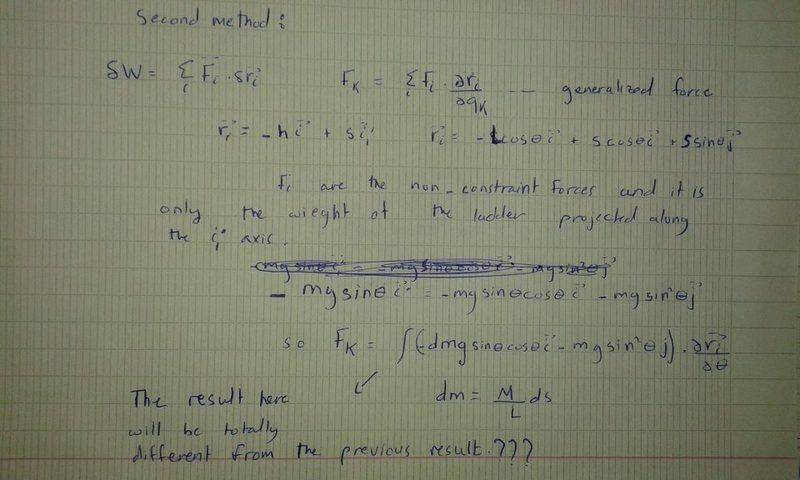 Second method:
δW = Σ_i F⃗_i · δr⃗_i    F_K = Σ_i F_i · ∂r⃗_i/∂q_K --- generalized force
r⃗_i = -h i⃗ + s i⃗_1    r⃗_i = -L cosθ i⃗ + s cosθ i⃗ + s sinθ j⃗
F_i are the non-constraint forces and it is
only the wieght of the ladder projected along
the i_1 axis.
- mg sinθ i⃗_1 = -mg sinθ cosθ i⃗ - mg sin²θ j⃗
so F_K = ∫(-dmg sinθ cosθ i⃗ - mg sin²θ j) · ∂r⃗_i/∂θ
The result here    dm = M/L ds
will be totally
different from the previous result.???